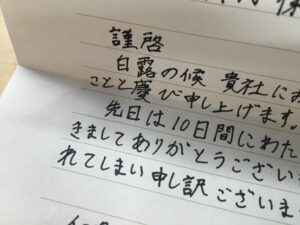 謹啓
白露の候 貴社にお
ことと慶び申し上げます。
先日は10日間にわた
きましてありがとうござい
れてしまい申し訳ございま